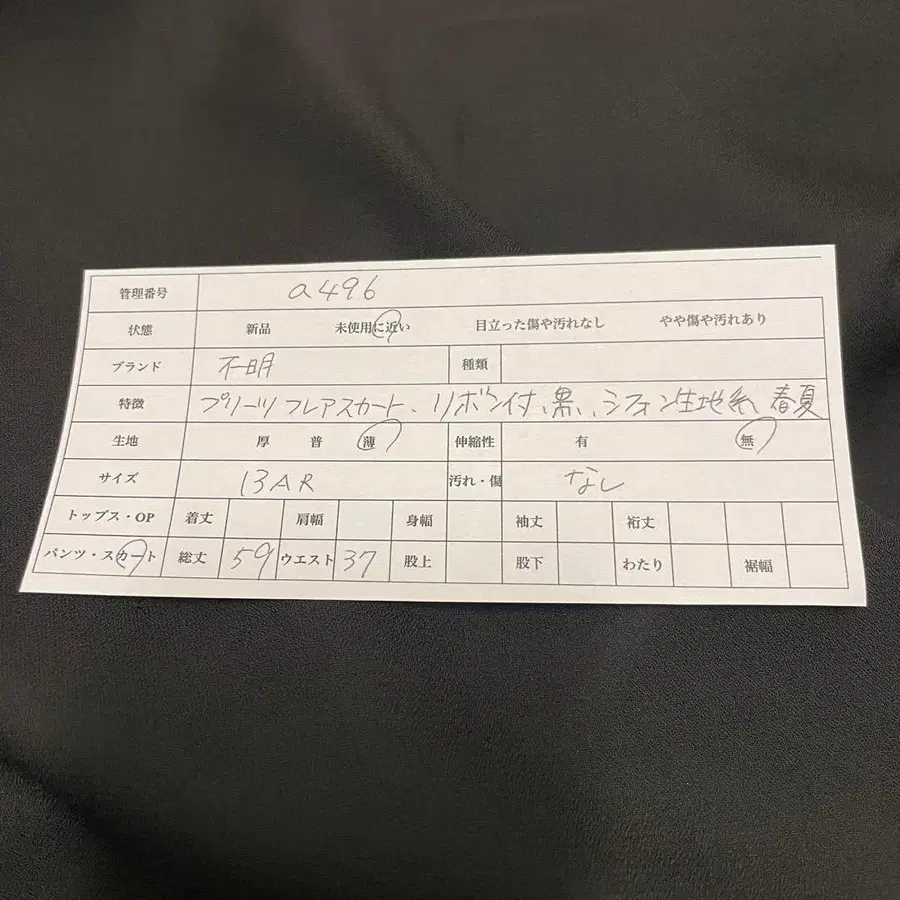 管理番号 a496
状態 新品 未使用に近い 目立った傷や汚れなし やや傷や汚れあり
ブランド 不明 種類
特徴 プリーツフレアスカート、リボン付、黒、シフォン生地系 春夏
生地 厚 普 薄 伸縮性 有 無
サイズ 13AR 汚れ・傷 なし
トップス・OP 着丈 肩幅 身幅 袖丈 裄丈
パンツ・スカート 総丈 59 ウエスト 37 股上 股下 わたり 裾幅